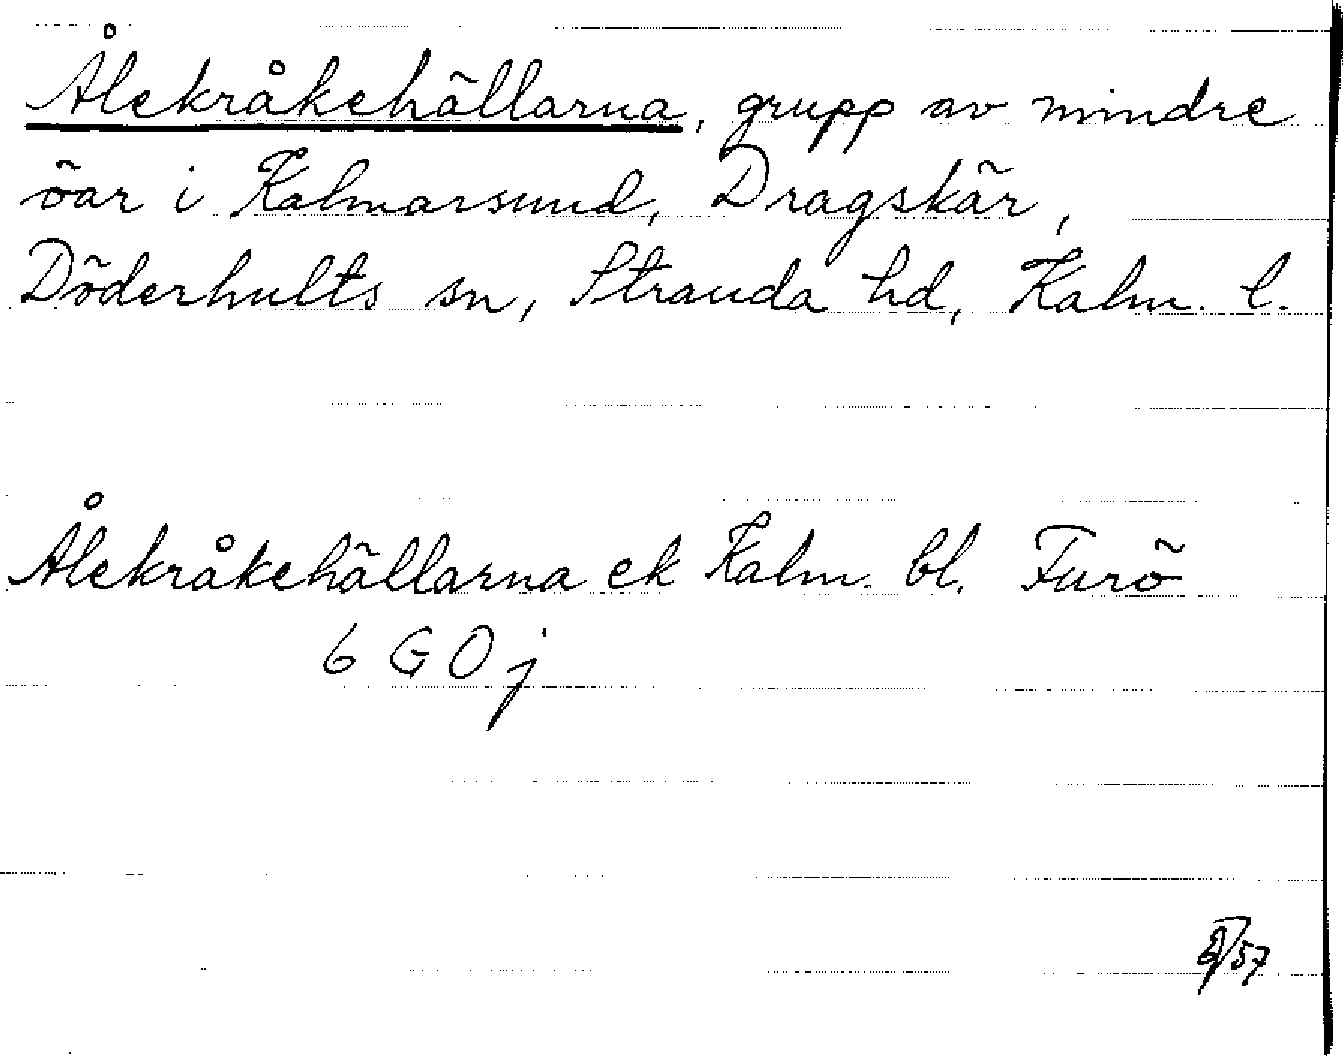 Ålekråkehällarna, grupp av mindre
öar i Kalmarsund, Dragskär,
Döderhults sn, Stranda hd, Kalm. l.
Ålekråkehällarna ek Kalm. bl. Furö
6 G O j
/57